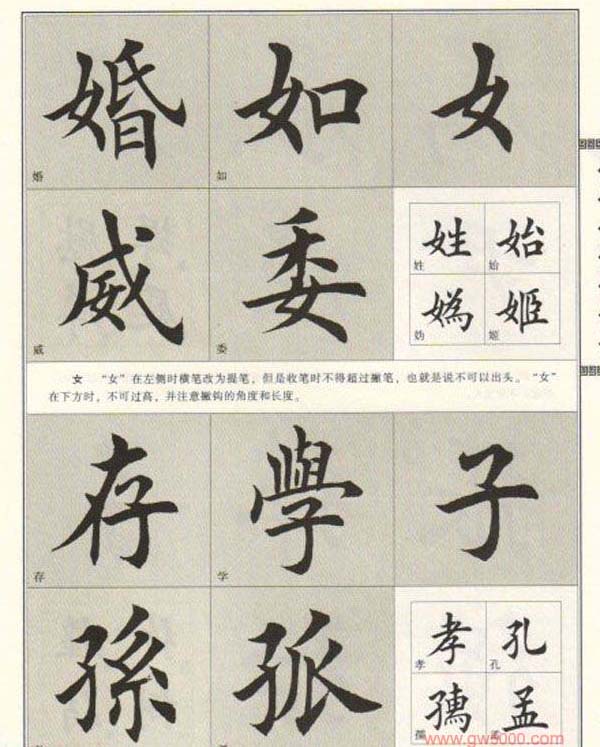 婚 如 女
婚 如
威 委
威 委
姓 始
姓 始
媯 姬
妫 姬
女 “女”在左侧时横笔改为提笔,但是收笔时不得超过撇笔,也就是说不可以出头。“女”
在下方时,不可过高,并注意撇钩的角度和长度。
存 學 子
存 学
孫 孤
孝 孔
孝 孔
孟
www.gw5000.com